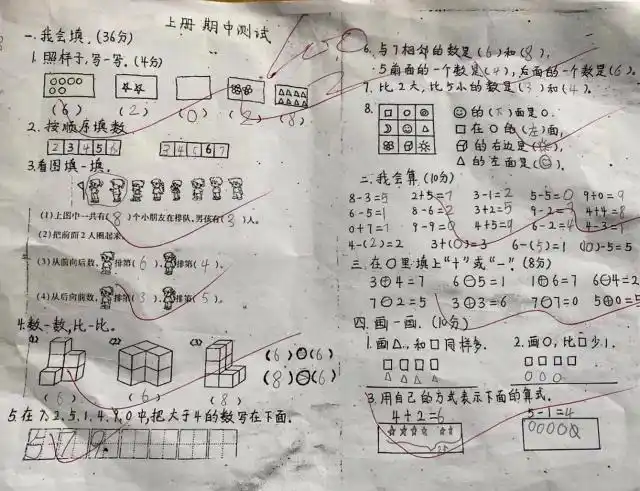 上册 期中测试
一.我会填.(36分)
1.照样子,写一写.(4分)
(6) (2) (0) (2) (8)
2.按顺序填数
2 3 4 5 6
3 4 5 6 7
3.看图填一填.
(1)上图中一共有(8)个小朋友在排队,男孩有(3)人。
(2)把前面2人圈起来.
(3)从前向后数, 排第(6), 排第(4)。
(4)从后向前数, 排第(3), 排第(5)。
4.数一数,比一比。
(2) (3)
(6)=(6)
(6) (6) (8)
5.在7、2、5、1、4、9、0中,把大于4的数写在下面.
5 7 9
6.与7相邻的数是(6)和(8),
5前面的一个数是(4),后面的一个数是(6)。
7.比2大,比5小的数是(3)和(4)。
8.
☺的(下)面是○.
□在○的(左)面,
的右边是(☼),
△的左面是(☺).
二.我会算.(10分)
8-3=5 2+5=7 3-1=2 5-5=0 9+0=9
6-5=1 8-6=2 3+2=5 4+4=8
0+7=7 9-9=0 4+5=9 6-2=4 4-3=1
4-(2)=2 3+(0)=3 6-(5)=1 (10)-5=5
三.在○里填上"+"或"-".(8分)
3+4=7 6-5=1 1+6=7 6-4=2
7-2=5 3+3=6 7-7=0 5+0=5
四.画一画.(10分)
1.画△,和□同样多.
2.画○,比□少1.
3.用自己的方式表示下面的算式.
4+2=6
5-1=4